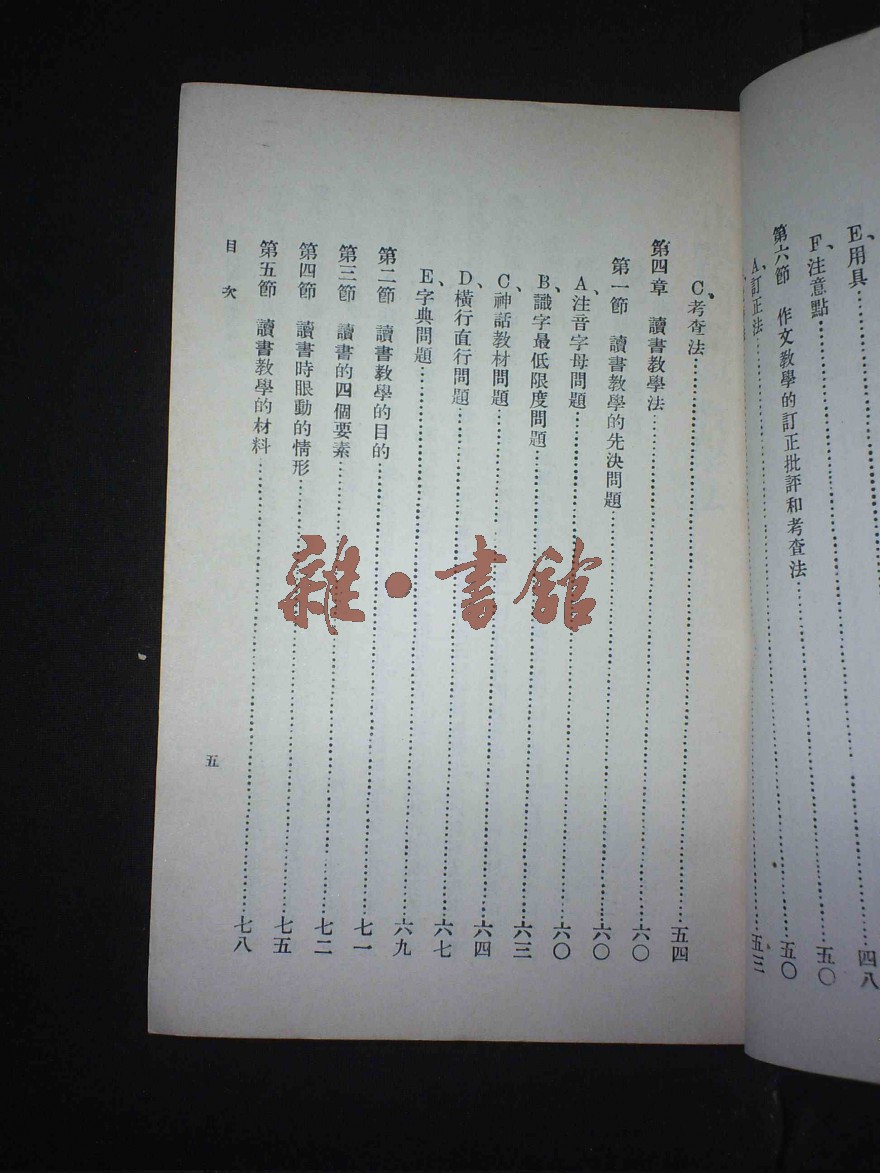 E、用具…………四八
F、注意點…………五〇
第六節　作文教學的訂正批評和考查法…………五〇
A、訂正法…………五三
C、考查法…………五四
第四章　讀書教學法…………六〇
第一節　讀書教學的先決問題…………六〇
A、注音字母問題…………六〇
B、識字最低限度問題…………六三
C、神話教材問題…………六四
D、橫行直行問題…………六七
E、字典問題…………六九
第二節　讀書教學的目的…………七一
第三節　讀書的四個要素…………七二
第四節　讀書時眼動的情形…………七五
第五節　讀書教學的材料…………七八
目次
五
雜·書館